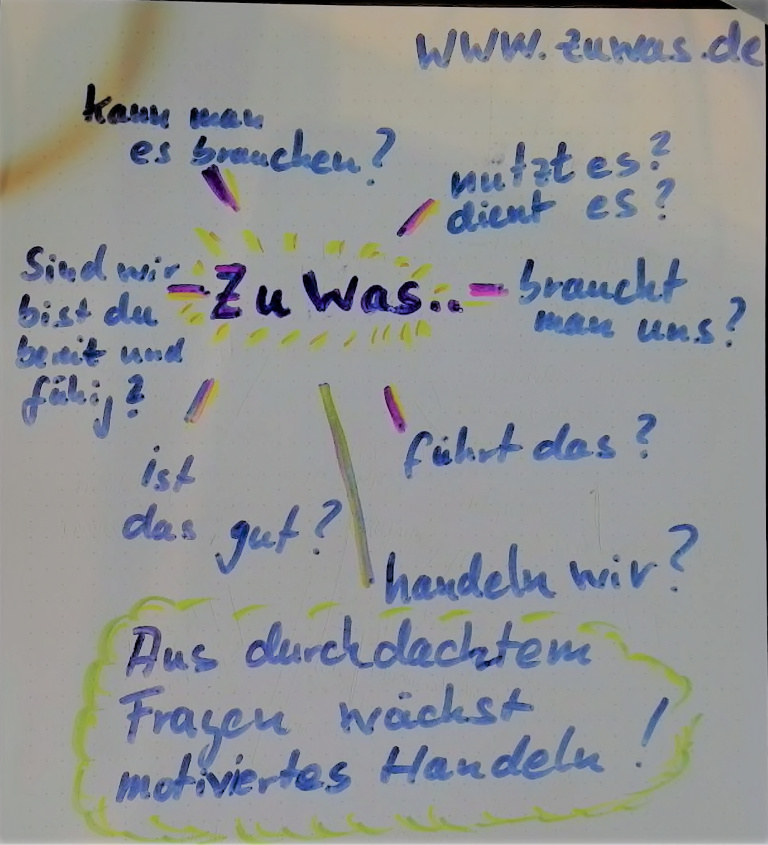 www.zuwas.de
kann man
es brauchen?
nützt es?
dient es?
Zu Was..
braucht
man uns?
Sind wir
bist du
bereit und
fähig?
führt das?
ist
das gut?
handeln wir?
Aus durchdachtem
Fragen wächst
motiviertes Handeln!